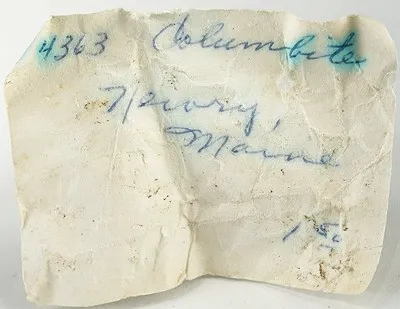 4363 Columbite
Newry,
Maine
1 50